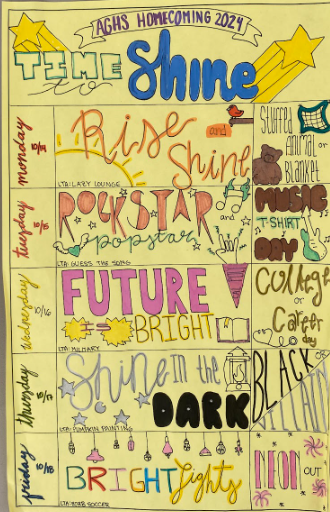 AGHS HOMECOMING 2024
TIME
to Shine
monday 10/14
Rise
and
Shine
LTA: LAZY LOUNGE
Stuffed
Animal or
Blanket
tuesday 10/15
ROCKSTAR
and
popstar
LTA: GUESS THE SONG
MUSIC
T-SHIRT
DAY
wednesday 10/16
FUTURE
IS
BRIGHT
College
or
Career
day
thursday 10/17
Shine In the
DARK
LTA: PUMPKIN PAINTING
BLACK
or
VILLAIN
friday 10/18
BRIGHT lights
NEON OUT